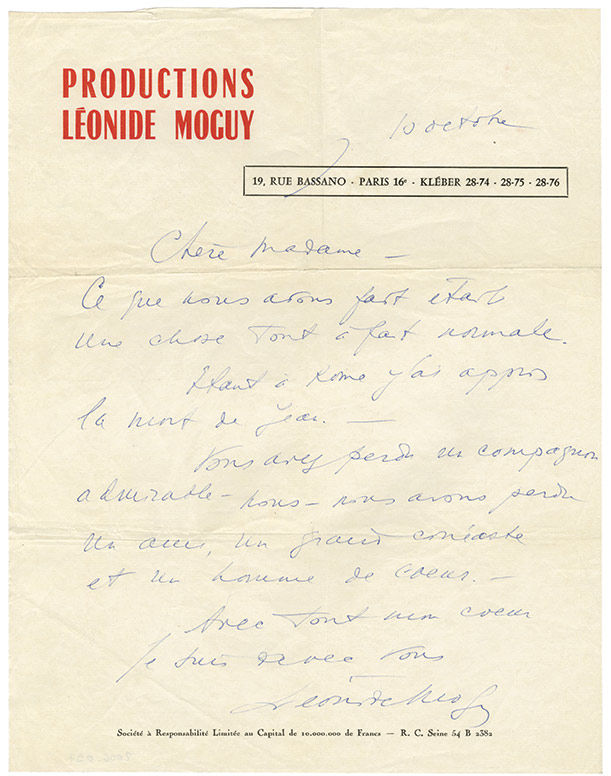 PRODUCTIONS
LÉONIDE MOGUY
10 octobre
19, RUE BASSANO · PARIS 16e · KLÉBER 28-74 · 28-75 · 28-76
Chère Madame –
Ce que nous avons fait était
une chose tout à fait normale.
Étant à Rome j'ai appris
la mort de Jean. –
Vous avez perdu un compagnon
admirable – nous – nous avons perdu
un ami, un grand cinéaste
et un homme de coeur. –
Avec tout mon coeur
je suis avec vous
Léonide Moguy
Société à Responsabilité Limitée au Capital de 10.000.000 de Francs — R. C. Seine 54 B 2382